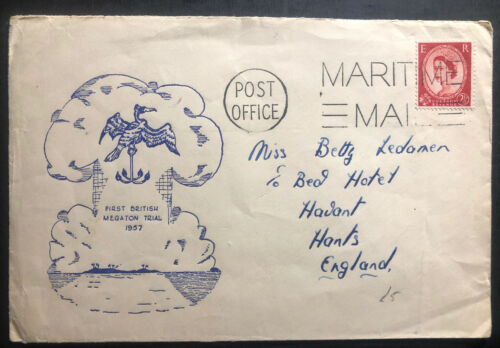 POST
OFFICE
MARITIME
MAIL
E R
FIRST BRITISH
MEGATON TRIAL
1957
Miss Betty Ledamen
c/o Bed Hotel
Havant
Hants
England.